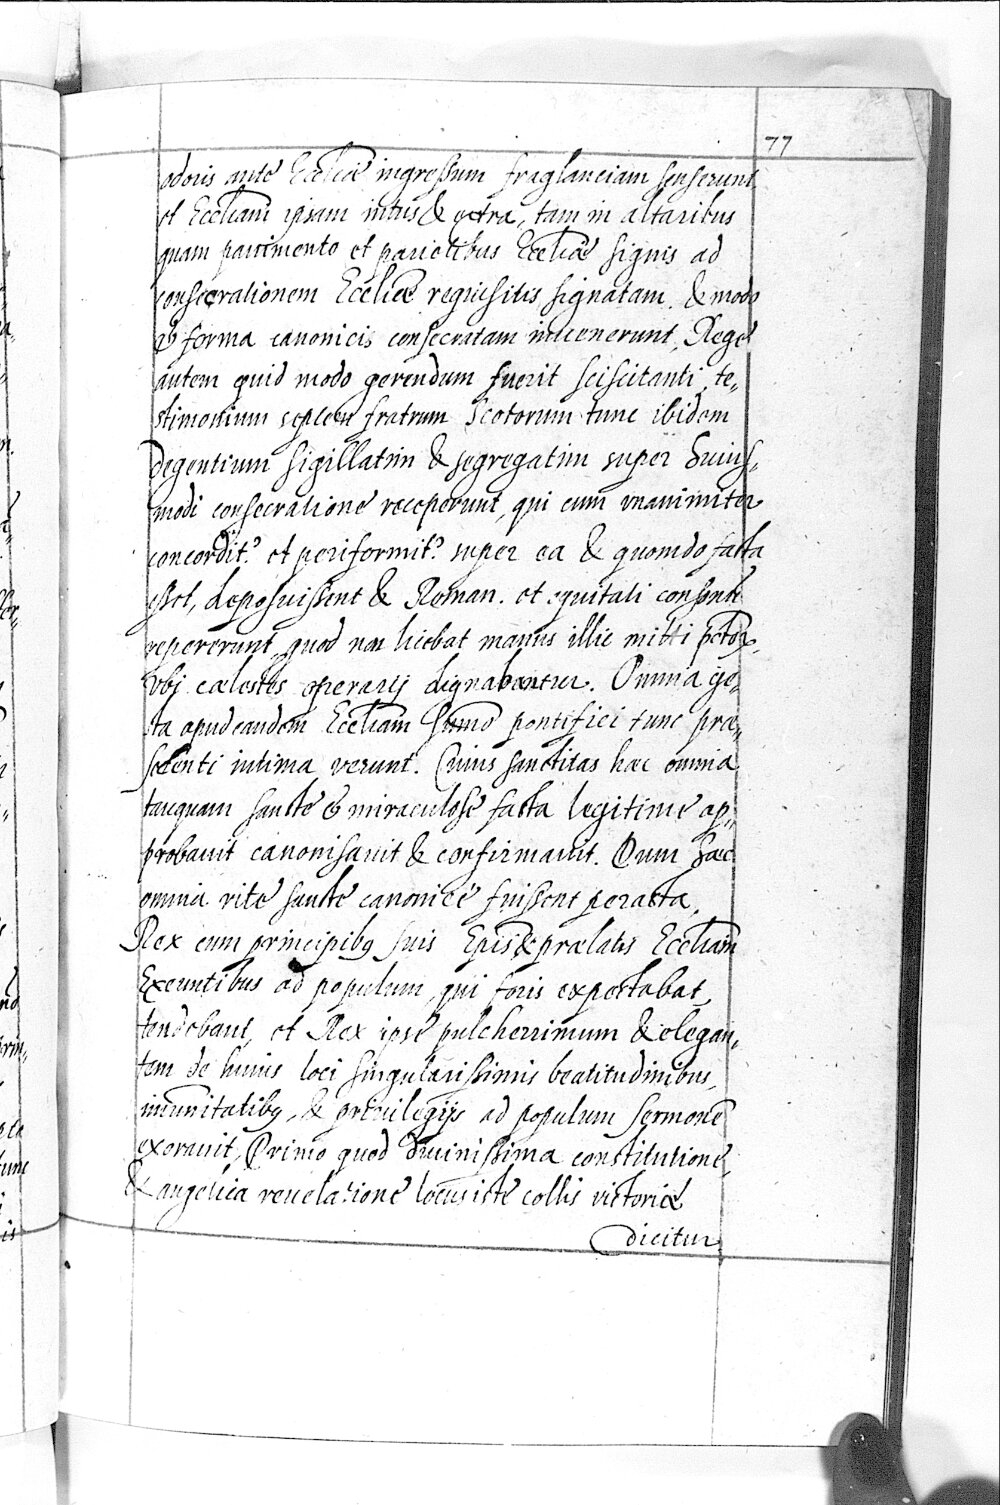 77
odoris ante Eccliæ ingressum fraglanciam senserunt
et Eccliam ipsam intus & extra, tam in altaribus
quam pauimento et parietibus Eccliæ signis ad
consecrationem Eccliæ requisitis signatam. & modo
& forma canonicis consecratam inuenerunt, Rege
autem quid modo gerendum fuerit sciscitanti, te„
stimonium septem fratrum Scotorum tunc ibidem
degentium sigillatim & segregatim super huius„
modi consecratione receperunt, qui cum vnanimiter
concordit.ʳ et periformit.ʳ super ea & quomdo facta
esset, deposuissent & Roman. et equitati consonã
repererunt, quod non licebat manus illic mitti
vbj cælestes operarij dignabantur. Omnia ge„
ta apud eandem Eccliam Sumo pontifici tunc præ„
sidenti intima verunt. Cuius sanctitas hæc omnia
tanquam sancte & miraculose facta legitime ap„
probauit canonisauit & confirmauit. Dum hæc
omnia rite sancte canonice fuissent peracta,
Rex cum principibꝫ suis Epis & prælatis Eccliam
Exeuntibus ad populum, qui foris expectabat,
tendebant, et Rex ipse pulcherrimum & elegan„
tem de huius loci singularissimis beatitudinibus,
imunitatibꝫ, & priuilegijs ad populum sermone
exorauit, Primo quod diuinissima constitutione,
& angelica reuelatione locus iste collis victoriæ
dicitur